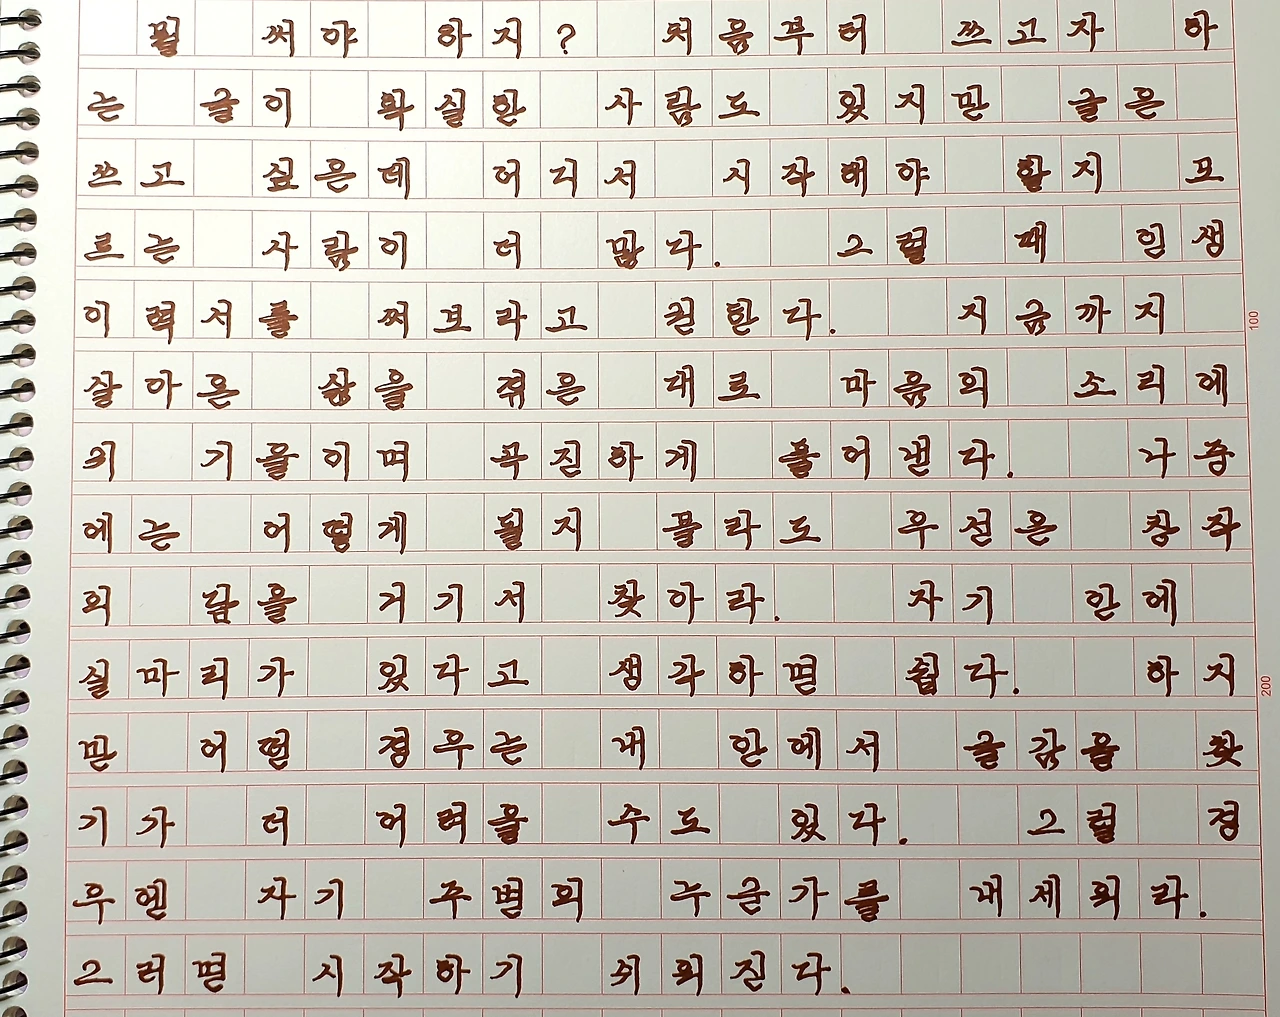 뭘 써야 하지? 처음부터 쓰고자 하
는 글이 확실한 사람도 있지만 글은
쓰고 싶은데 어디서 시작해야 할지 모
르는 사람이 더 많다. 그럴 때 인생
이력서를 써보라고 권한다. 지금까지
살아온 삶을 겪은 대로 마음의 소리에
귀 기울이며 곡진하게 풀어낸다. 나중
에는 어떻게 될지 몰라도 우선은 창작
의 답을 거기서 찾아라. 자기 안에
실마리가 있다고 생각하면 쉽다. 하지
만 어떤 경우는 내 안에서 글감을 찾
기가 더 어려울 수도 있다. 그럴 경
우엔 자기 주변의 누군가를 내세워라.
그러면 시작하기 쉬워진다.
100
200